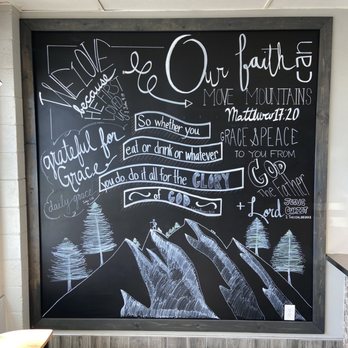 WE LOVE
because
HE FIRST
LOVED US
Our faith
can
MOVE MOUNTAINS
Matthew 17:20
grateful for
Grace
daily grace
So whether you
eat or drink or whatever
you do do it all for the GLORY
of GOD
GRACE & PEACE
TO YOU FROM
GOD
THE Father
+ Lord
JESUS
CHRIST